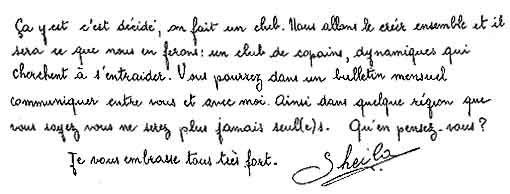 Ça y est c'est décidé, on fait un club. Nous allons le créer ensemble et il
sera ce que nous en ferons: un club de copains, dynamiques qui
cherchent à s'entraider. Vous pourrez dans un bulletin mensuel
communiquer entre vous et avec moi. Ainsi dans quelque région que
vous soyez vous ne serez plus jamais seul(e)s. Qu'en pensez-vous?
Je vous embrasse tous très fort. Sheila